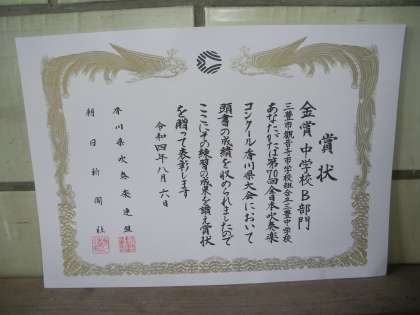 賞状
金賞 中学校B部門
三豊市観音寺市学校組合立三豊中学校
あなたがたは第70回全日本吹奏楽
コンクール香川県大会において
頭書の成績を収められましたので
ここにその練習の成果を讃え賞状
を贈って表彰します
令和四年八月六日
香川県吹奏楽連盟
朝日新聞社